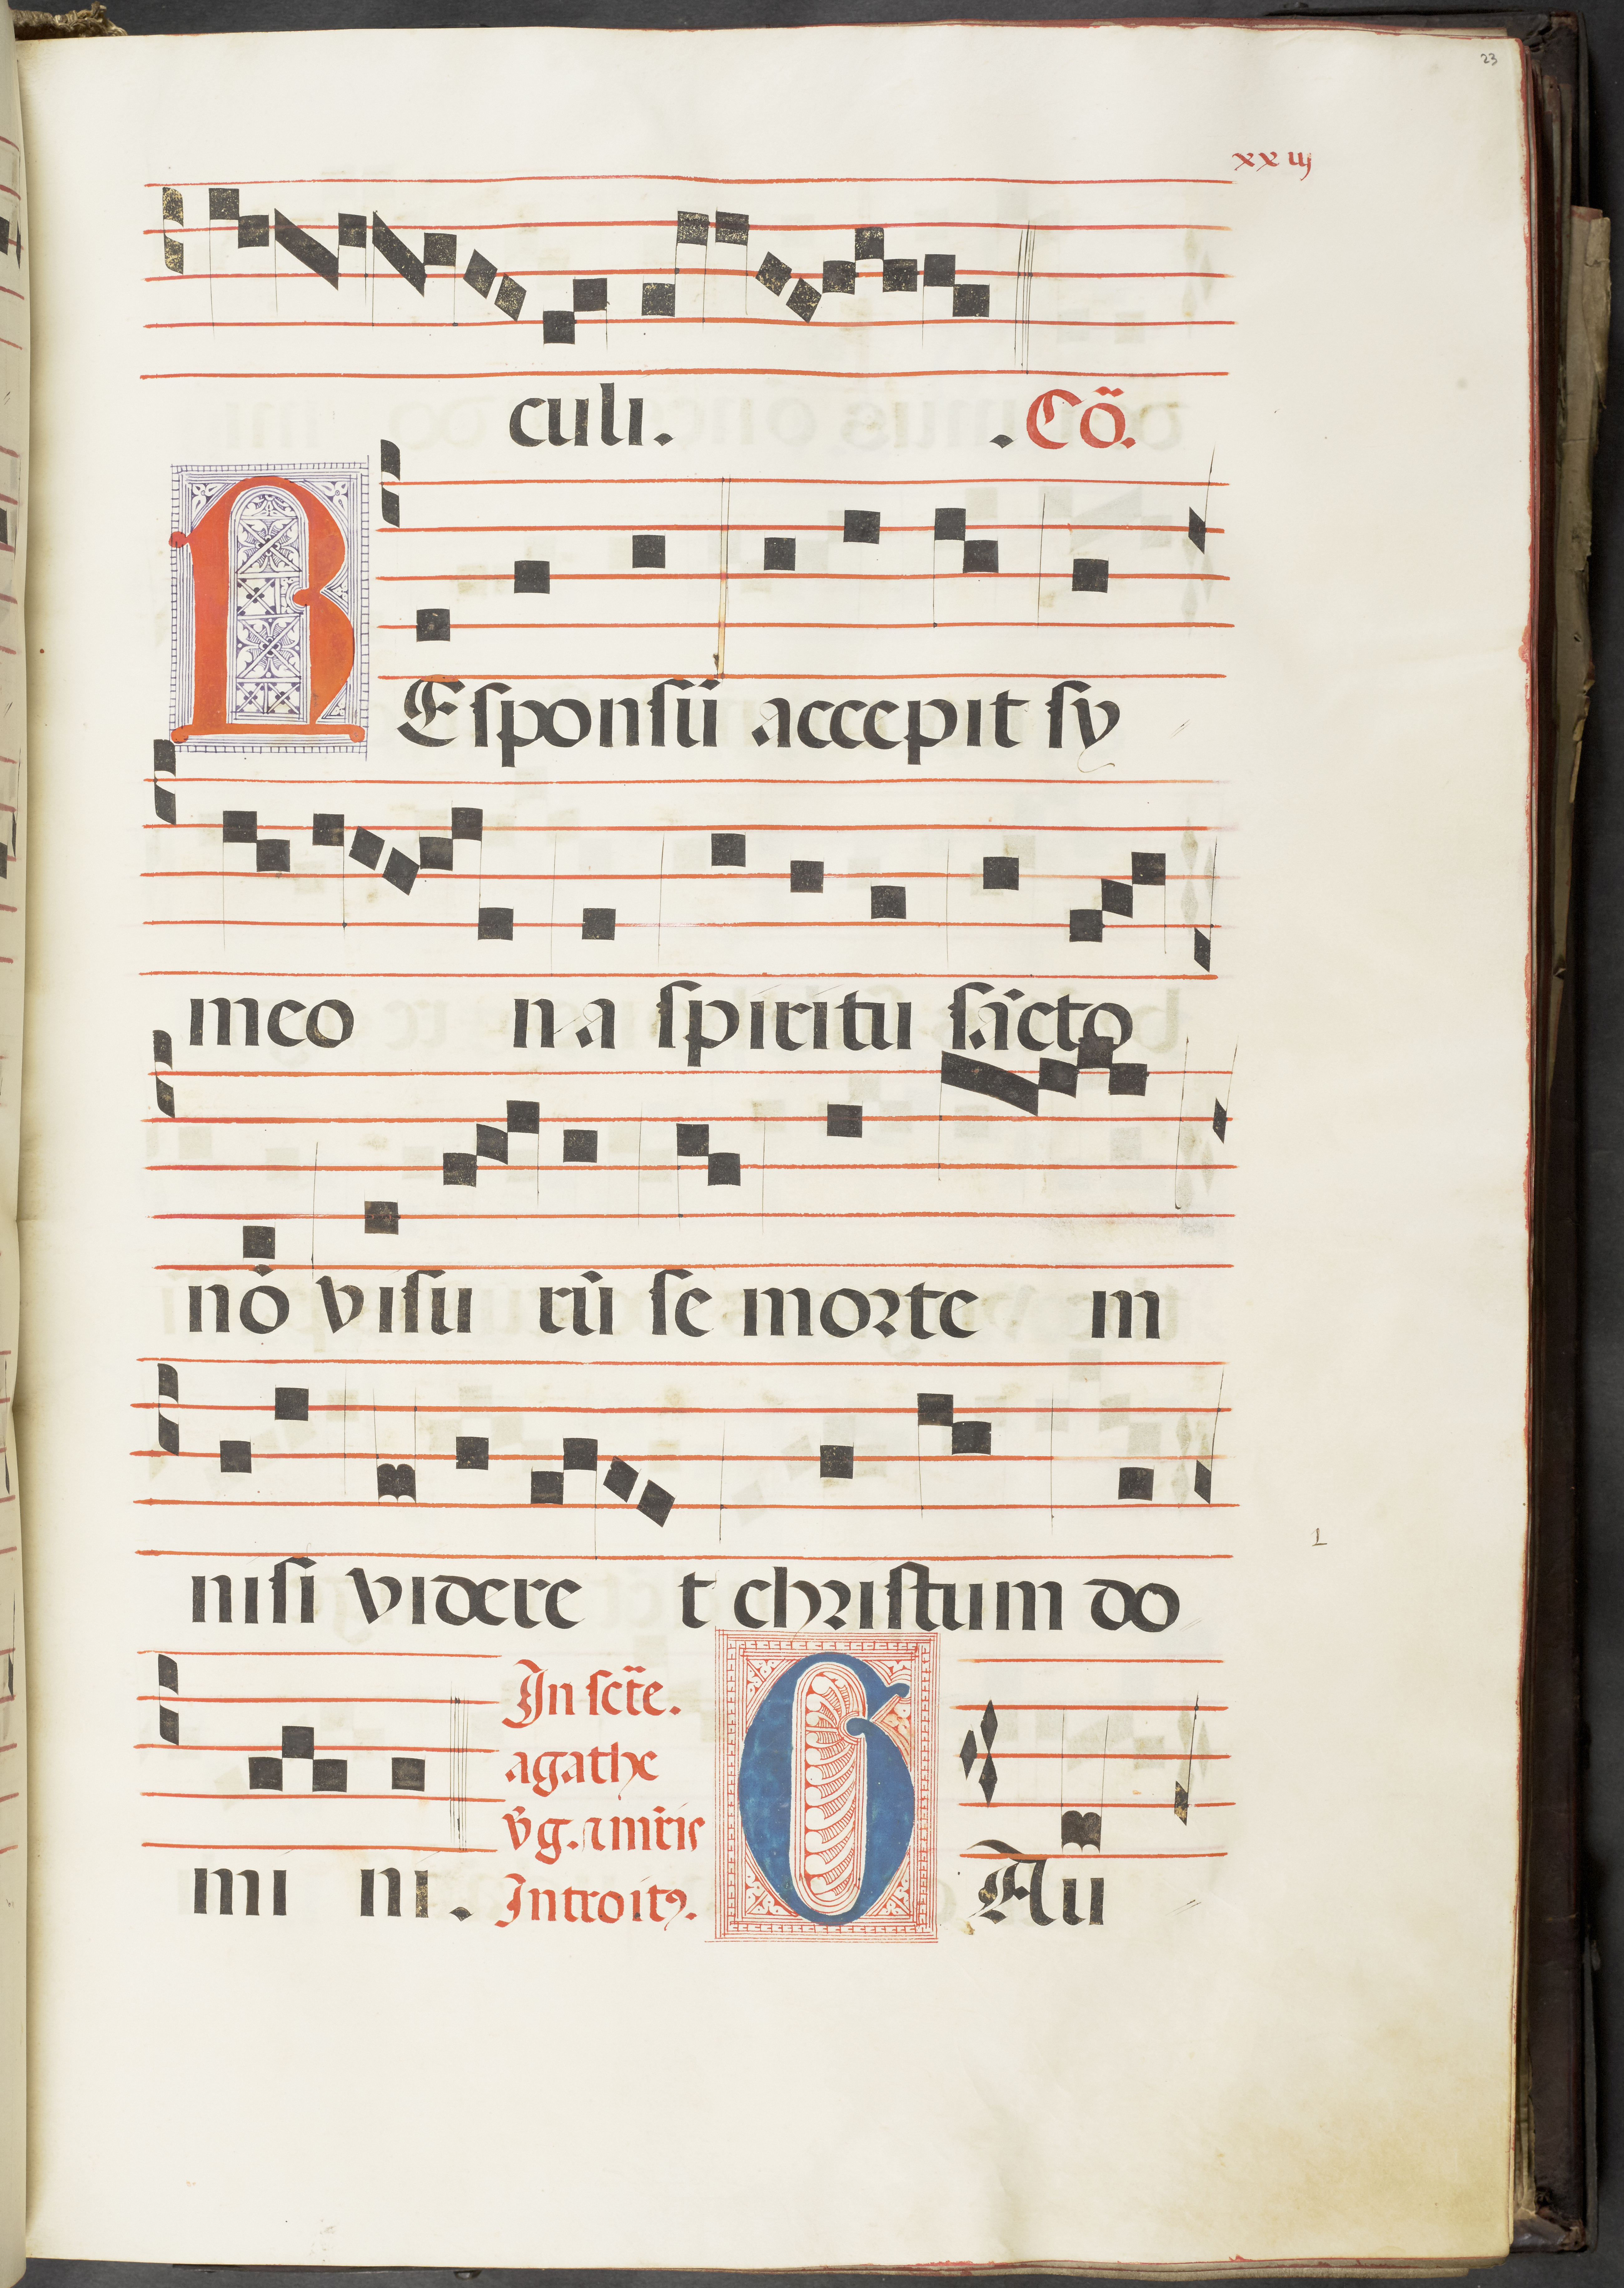 23
xx iij
culi. . Cõ.
REsponsũ accepit sy
meo na spiritu sãcto
nõ visu rũ se morte m
nisi videre t christum do
In scẽte.
agathe
v̄g. ⁊ mr̃is
Introitꝯ.
mi ni. GAu
1